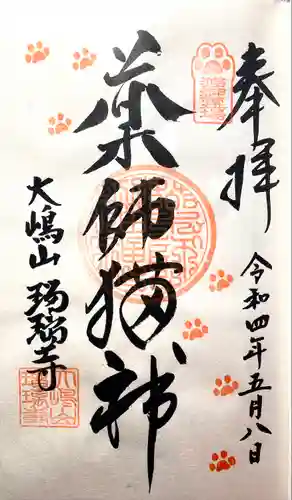 奉拝
令和四年五月八日
薬師猫神
大嶋山 瑠璃寺